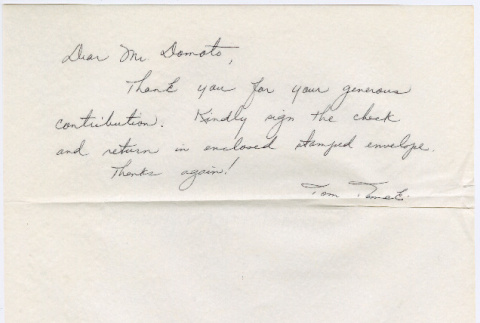 Dear Mr Domoto,
Thank you for your generous
contribution. Kindly sign the check
and return in enclosed stamped envelope.
Thanks again!
Tom